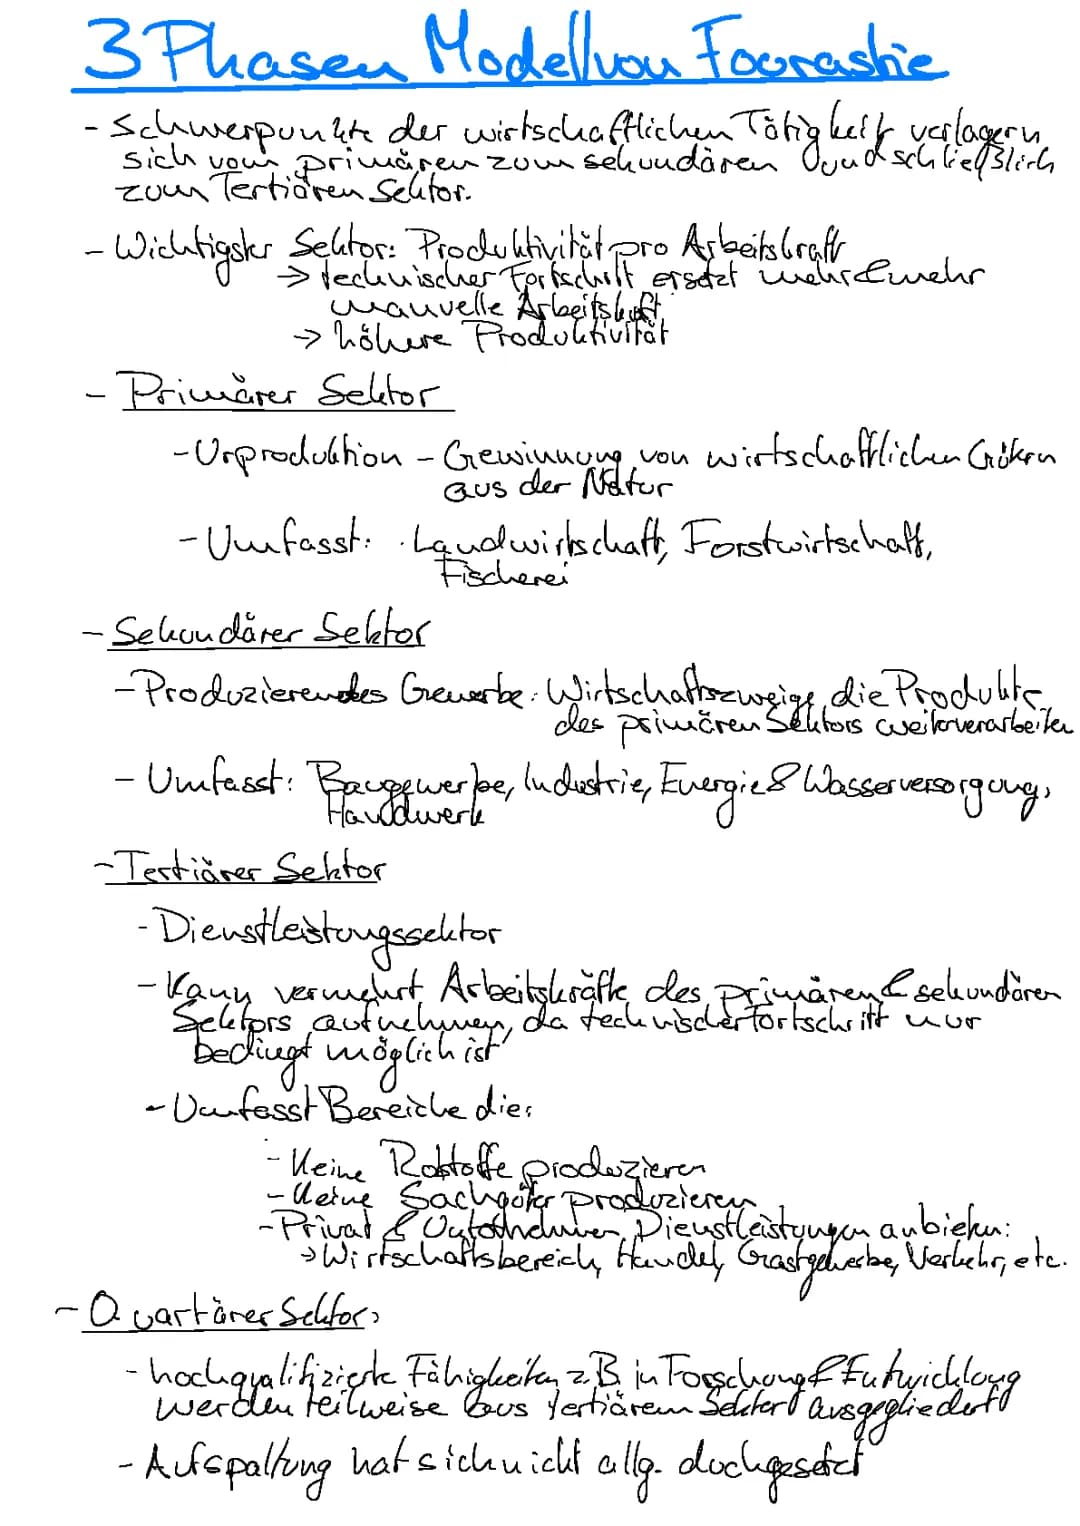 3 Phasen Modell von Foorastie
- Schwerpunkte der wirtschaftlichen Tätigkeit verlagern
sich vom primären zum sekundären und schließlich
zum Tertiären Sektor.
- Wichtigster Sektor: Produktivität pro Arbeitskraft
→ technischer Fortschritt ersetzt mehr & mehr
manuelle Arbeitskraft
→ höhere Produktivität
- Primärer Sektor
- Urproduktion - Gewinnung von wirtschaftlichen Gütern
aus der Natur
- Umfasst: Landwirtschaft, Forstwirtschaft,
Fischerei
- Sekundärer Sektor
- Produzierendes Gewerbe: Wirtschaftszweige, die Produkte
des primären Sektors weiterverarbeiten
- Umfasst: Baugewerbe, Industrie, Energie & Wasserversorgung,
Handwerk
- Tertiärer Sektor
- Dienstleistungssektor
- Kann vermehrt Arbeitskräfte des primären & sekundären
Sektors aufnehmen, da technischer Fortschritt nur
bedingt möglich ist
- Umfasst Bereiche die:
- Keine Rohstoffe produzieren
- Keine Sachgüter produzieren
- Privat & Dienstleistungen anbieten:
→ Wirtschaftsbereich, Handel, Gastgewerbe, Verkehr, etc.
- Quartärer Sektor:
- hochqualifizierte Fähigkeiten z.B. in Forschung & Entwicklung
werden teilweise aus tertiärem Sektor ausgegliedert
- Aufspaltung hat sich nicht allg. duchgesetzt